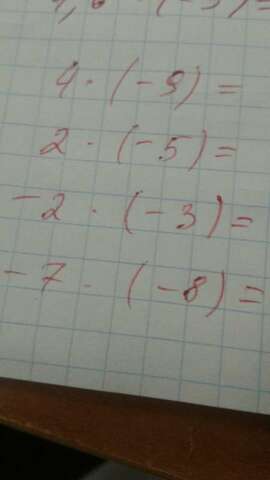 4 · (-9) =
2 · (-5) =
-2 · (-3) =
-7 · (-8) =